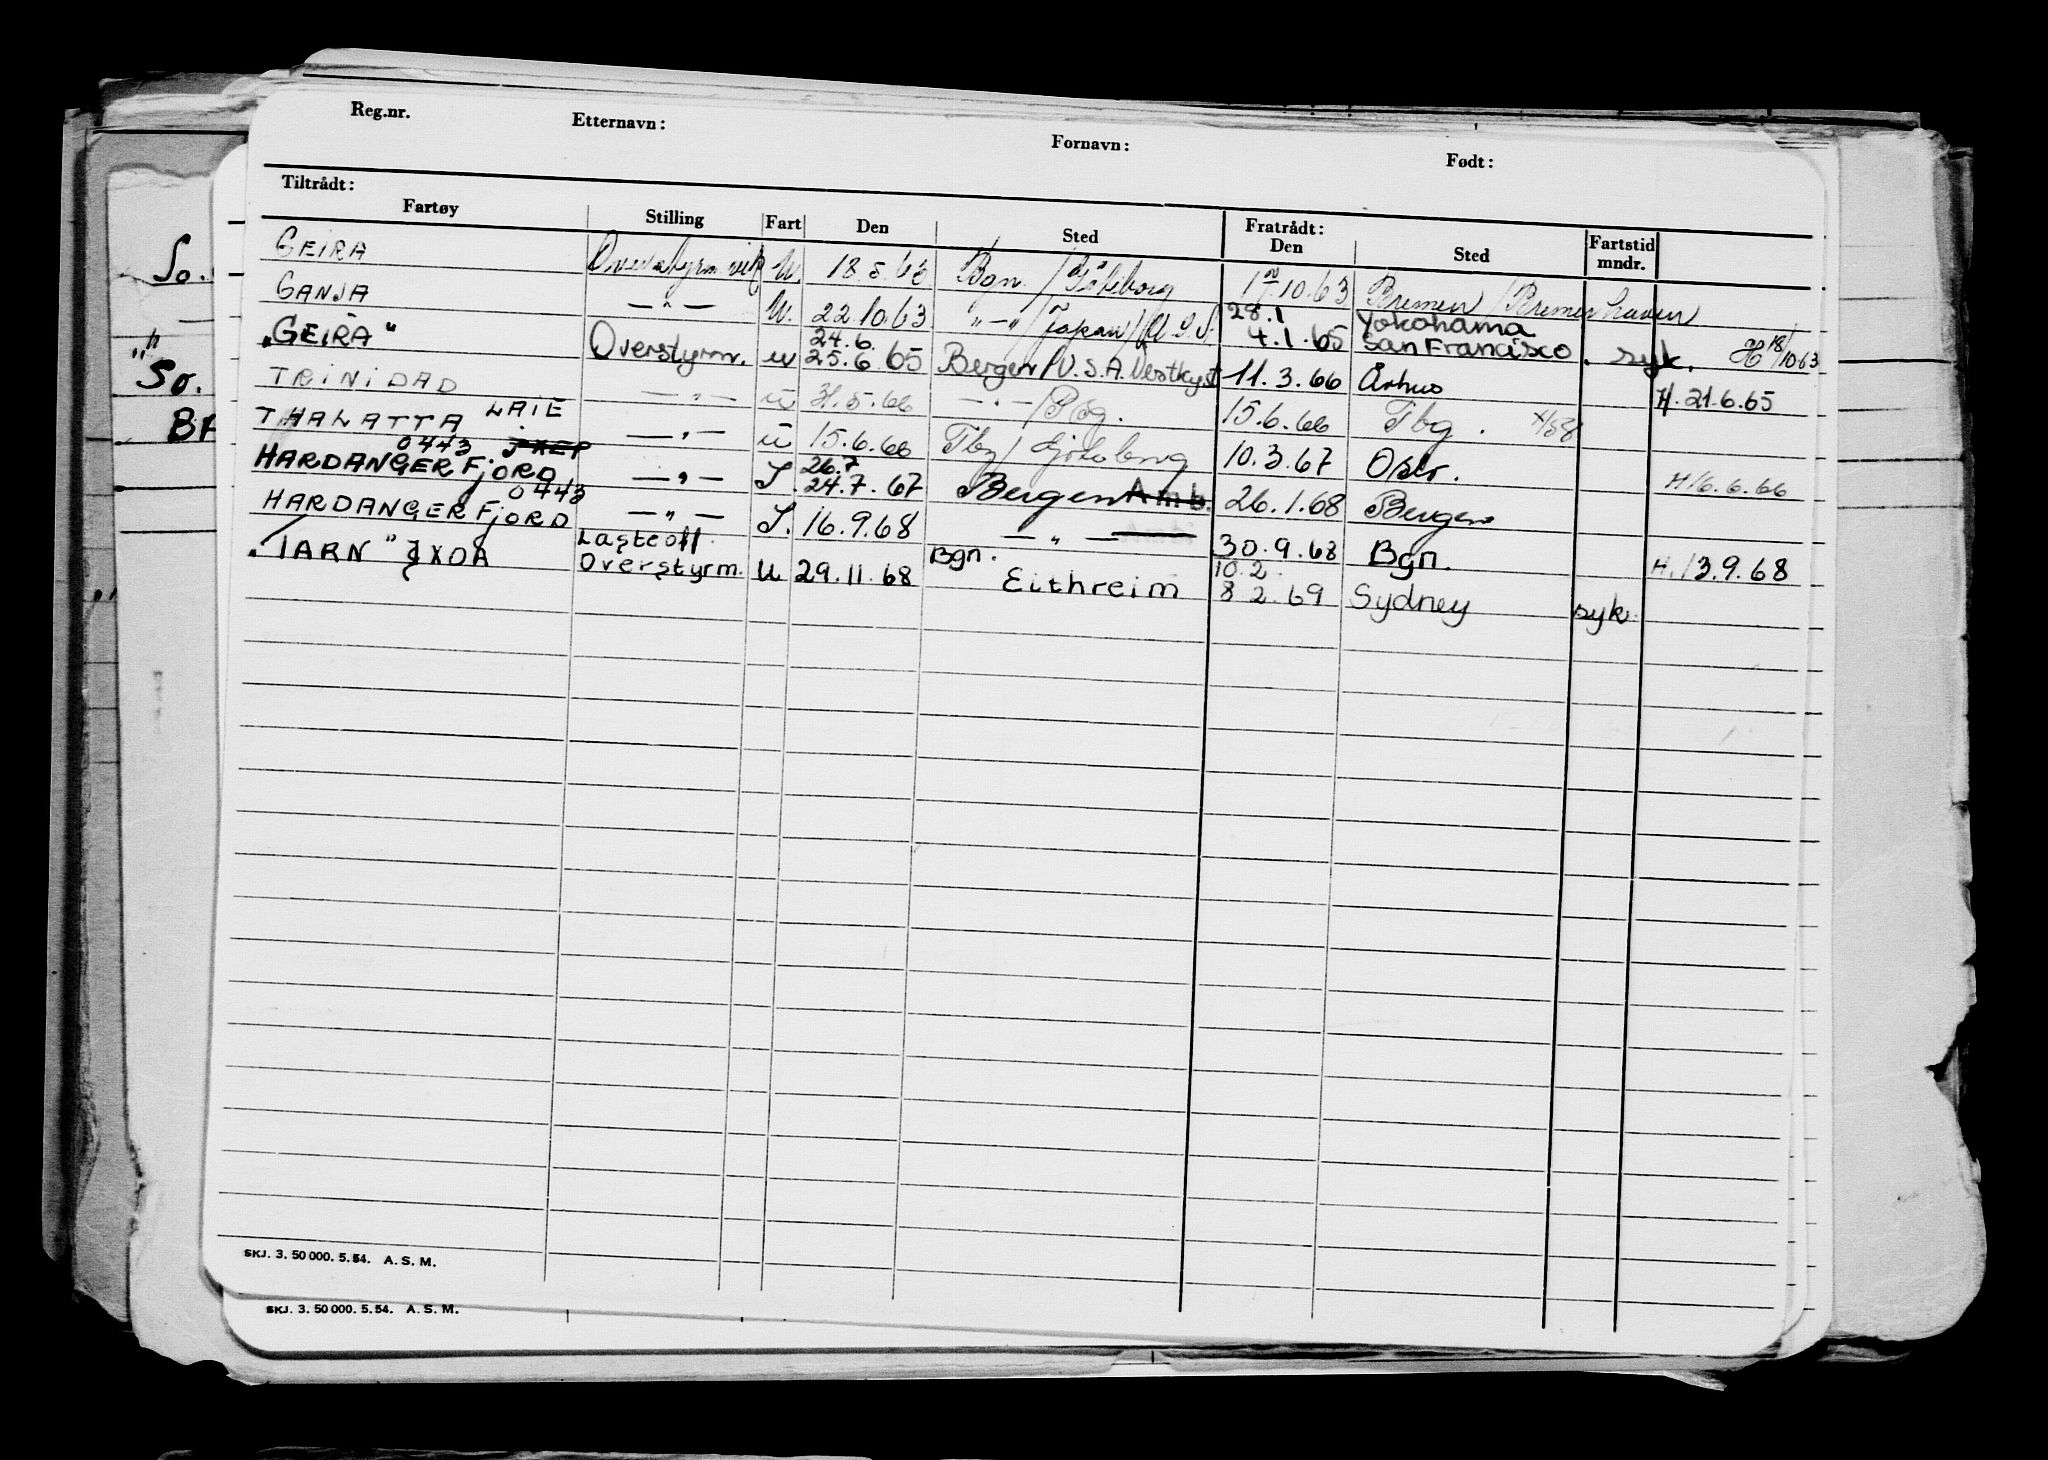 Reg.nr. Etternavn: Fornavn: Født:
Tiltrådt: Fratrådt:
Fartøy Stilling Fart Den Sted Den Sted Fartstid mndr.
GEIRA Overstyrm. vik U 18.5.63 Bgn. / Göteborg 17.10.63 Bremen / Bremerhaven
GANJA — " — U. 22.10.63 " — " / Japan / U.S.A. 28.1 Yokohama
"GEIRA" Overstyrm. u 24.6. 25.6.65 Bergen / U.S.A. Vestkyst 4.1.65 San Francisco. syk. 18/10 63
TRINIDAD — " — u 31.5.66 — " — / 11.3.66 Århus H. 21.6.65
THALATTA LAIE — " — u 15.6.66 Tbg / 15.6.66 Tbg.
0443 JXEP
HARDANGERFJORD — " — S. 26.7 24.7.67 Bergen Amb. 10.3.67 Oslo. H 16.6.66
HARDANGERFJORD 0443 — " — S. 16.9.68 — " — 26.1.68 Bergen
Lasteoff. Bgn. 30.9.68 Bgn. H. 13.9.68
"TARN" JXOA Overstyrm. U 29.11.68 Eithreim 10.2 8.2.69 Sydney syk.
So.
So.
SKJ. 3. 50 000. 5. 54. A. S. M.
SKJ. 3. 50 000. 5. 54. A. S. M.